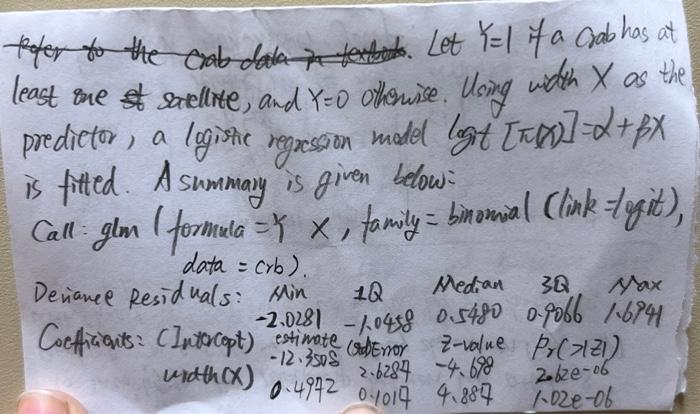 Refer to the crab data in textbook. Let Y=1 if a crab has at
least one st satellite, and Y=0 otherwise. Using width X as the
predictor, a logistic regression model logit [π(x)]=α+βX
is fitted. A summary is given below:
Call: glm (formula = Y X, family = binomial (link = logit),
data = crb).
Deviance Residuals: Min 1Q Median 3Q Max
-2.0281 -1.0458 0.5480 0.9066 1.6941
Coefficients: estimate (Std Error z-value Pr(>|z|)
(Intercept) -12.3508 2.6287 -4.698 2.62e-06
width(X) 0.4972 0.1017 4.887 1.02e-06